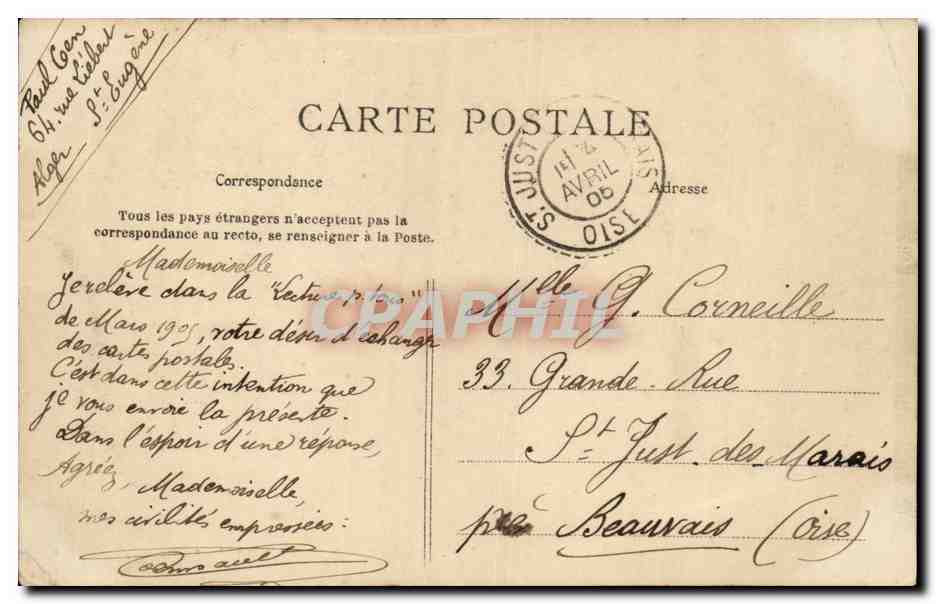 Paul
64. rue Liébert
St Eugène
Alger
CARTE POSTALE
ST JUST
AIS
AVRIL
05
OISE
Correspondance
Adresse
Tous les pays étrangers n'acceptent pas la
correspondance au recto, se renseigner à la Poste.
Mademoiselle
Je relève dans la "Lectures p. tous"
de Mars 1905, votre désir d'échanger
des cartes postales.
C'est dans cette intention que
je vous envoie la présente.
Dans l'espoir d'une réponse,
Agréez, Mademoiselle,
mes civilités empressées:
Mlle G. Corneille
33. Grande-Rue
St Just-des-Marais
près Beauvais (Oise)
CPAPHIL